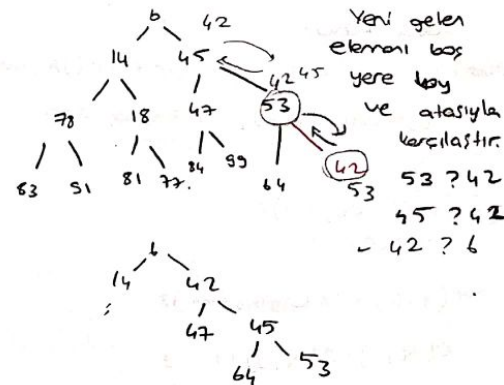 6 42
14 45
42 45
78 18 47 53
83 91 81 77 84 99 64 42
53
Yeni gelen
elemanı boş
yere koy
ve atasıyla
karşılaştır.
53 ? 42
45 ? 42
- 42 ? 6
6
14 42
47 45
64 53